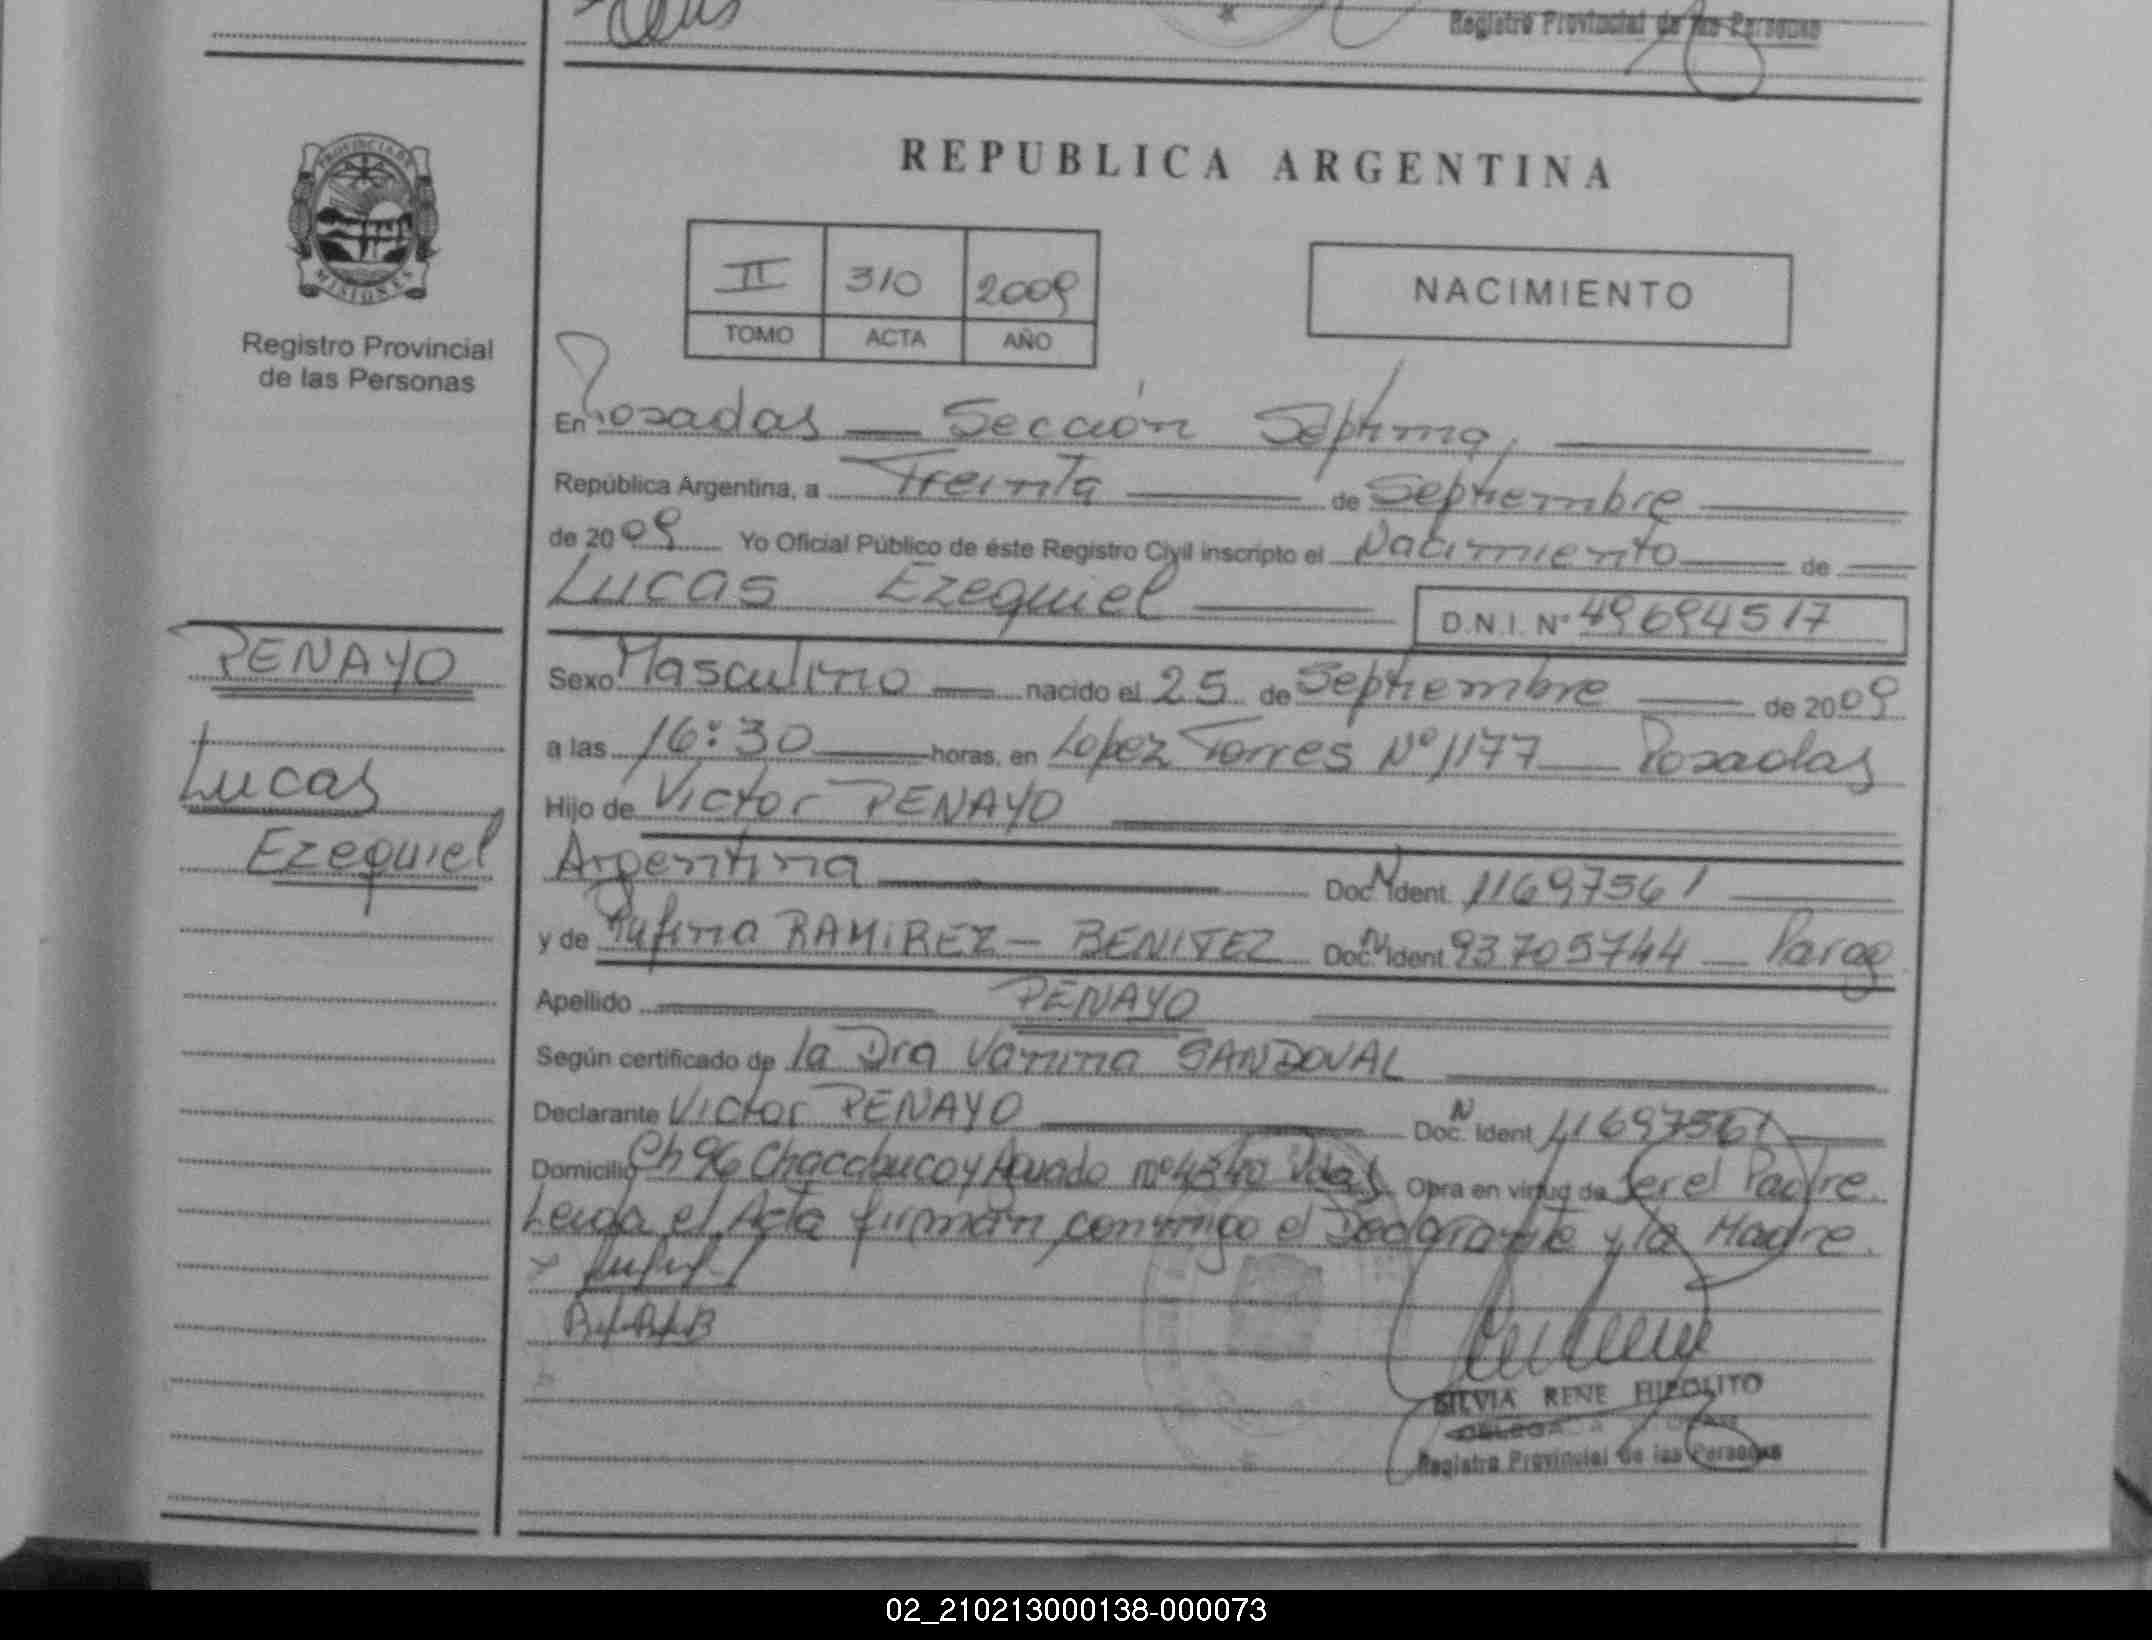 Registro Provincial de las Personas
PROVINCIA DE
MISIONES
Registro Provincial
de las Personas
REPUBLICA ARGENTINA
II 310 2009
TOMO ACTA AÑO
NACIMIENTO
En Posadas — Sección Séptima,
República Argentina, a Treinta de Septiembre
de 2009 Yo Oficial Público de éste Registro Civil inscripto el Nacimiento de
Lucas Ezequiel D.N.I. Nº 49694517
PENAYO
Lucas
Ezequiel
Sexo Masculino — nacido el 25 de Septiembre de 2009
a las 16:30 horas, en Lopez Torres Nº 1177 — Posadas
Hijo de Victor PENAYO
Argentina Doc. N Ident. 11697561
y de Rufina RAMIREZ - BENITEZ Doc. N Ident. 93705744 — Parag
Apellido PENAYO
Según certificado de la Dra Vanina SANDOVAL
Declarante Victor PENAYO Doc. N Ident 11697561
Domicilio Ch 96 Chacabuco y Aguado nº 4340 Pdas Obra en virtud de Ser el Padre.
Leida el Acta firman conmigo el Declarante y la Madre.
SILVIA RENE HIPOLITO
Registro Provincial de las Personas
02_210213000138-000073